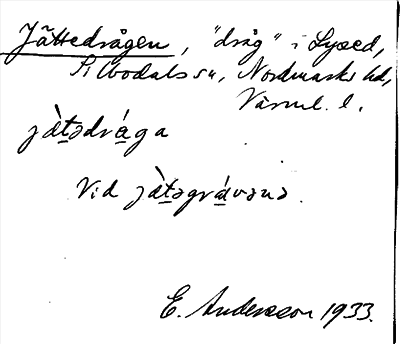 Jättedrågen, "dråg" i Lysed,
Silbodals sn, Nordmarks hd,
Värml. l.
jàt̲ədrá̲ga
Vid jàt̲əgrá̲vənə.
E. Andersson 1933.